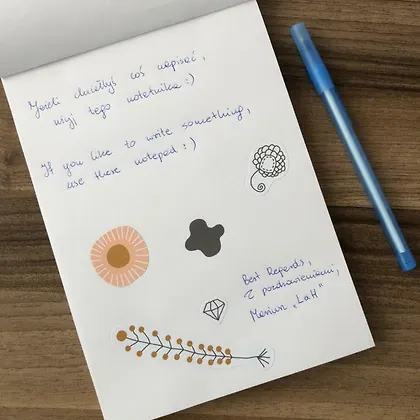 Jeśli chciałbyś coś napisać,
użyj tego notatnika :)
If you like to write something,
use these notepad :)
Best Regerds,
z pozdrowieniami,
"LaH"